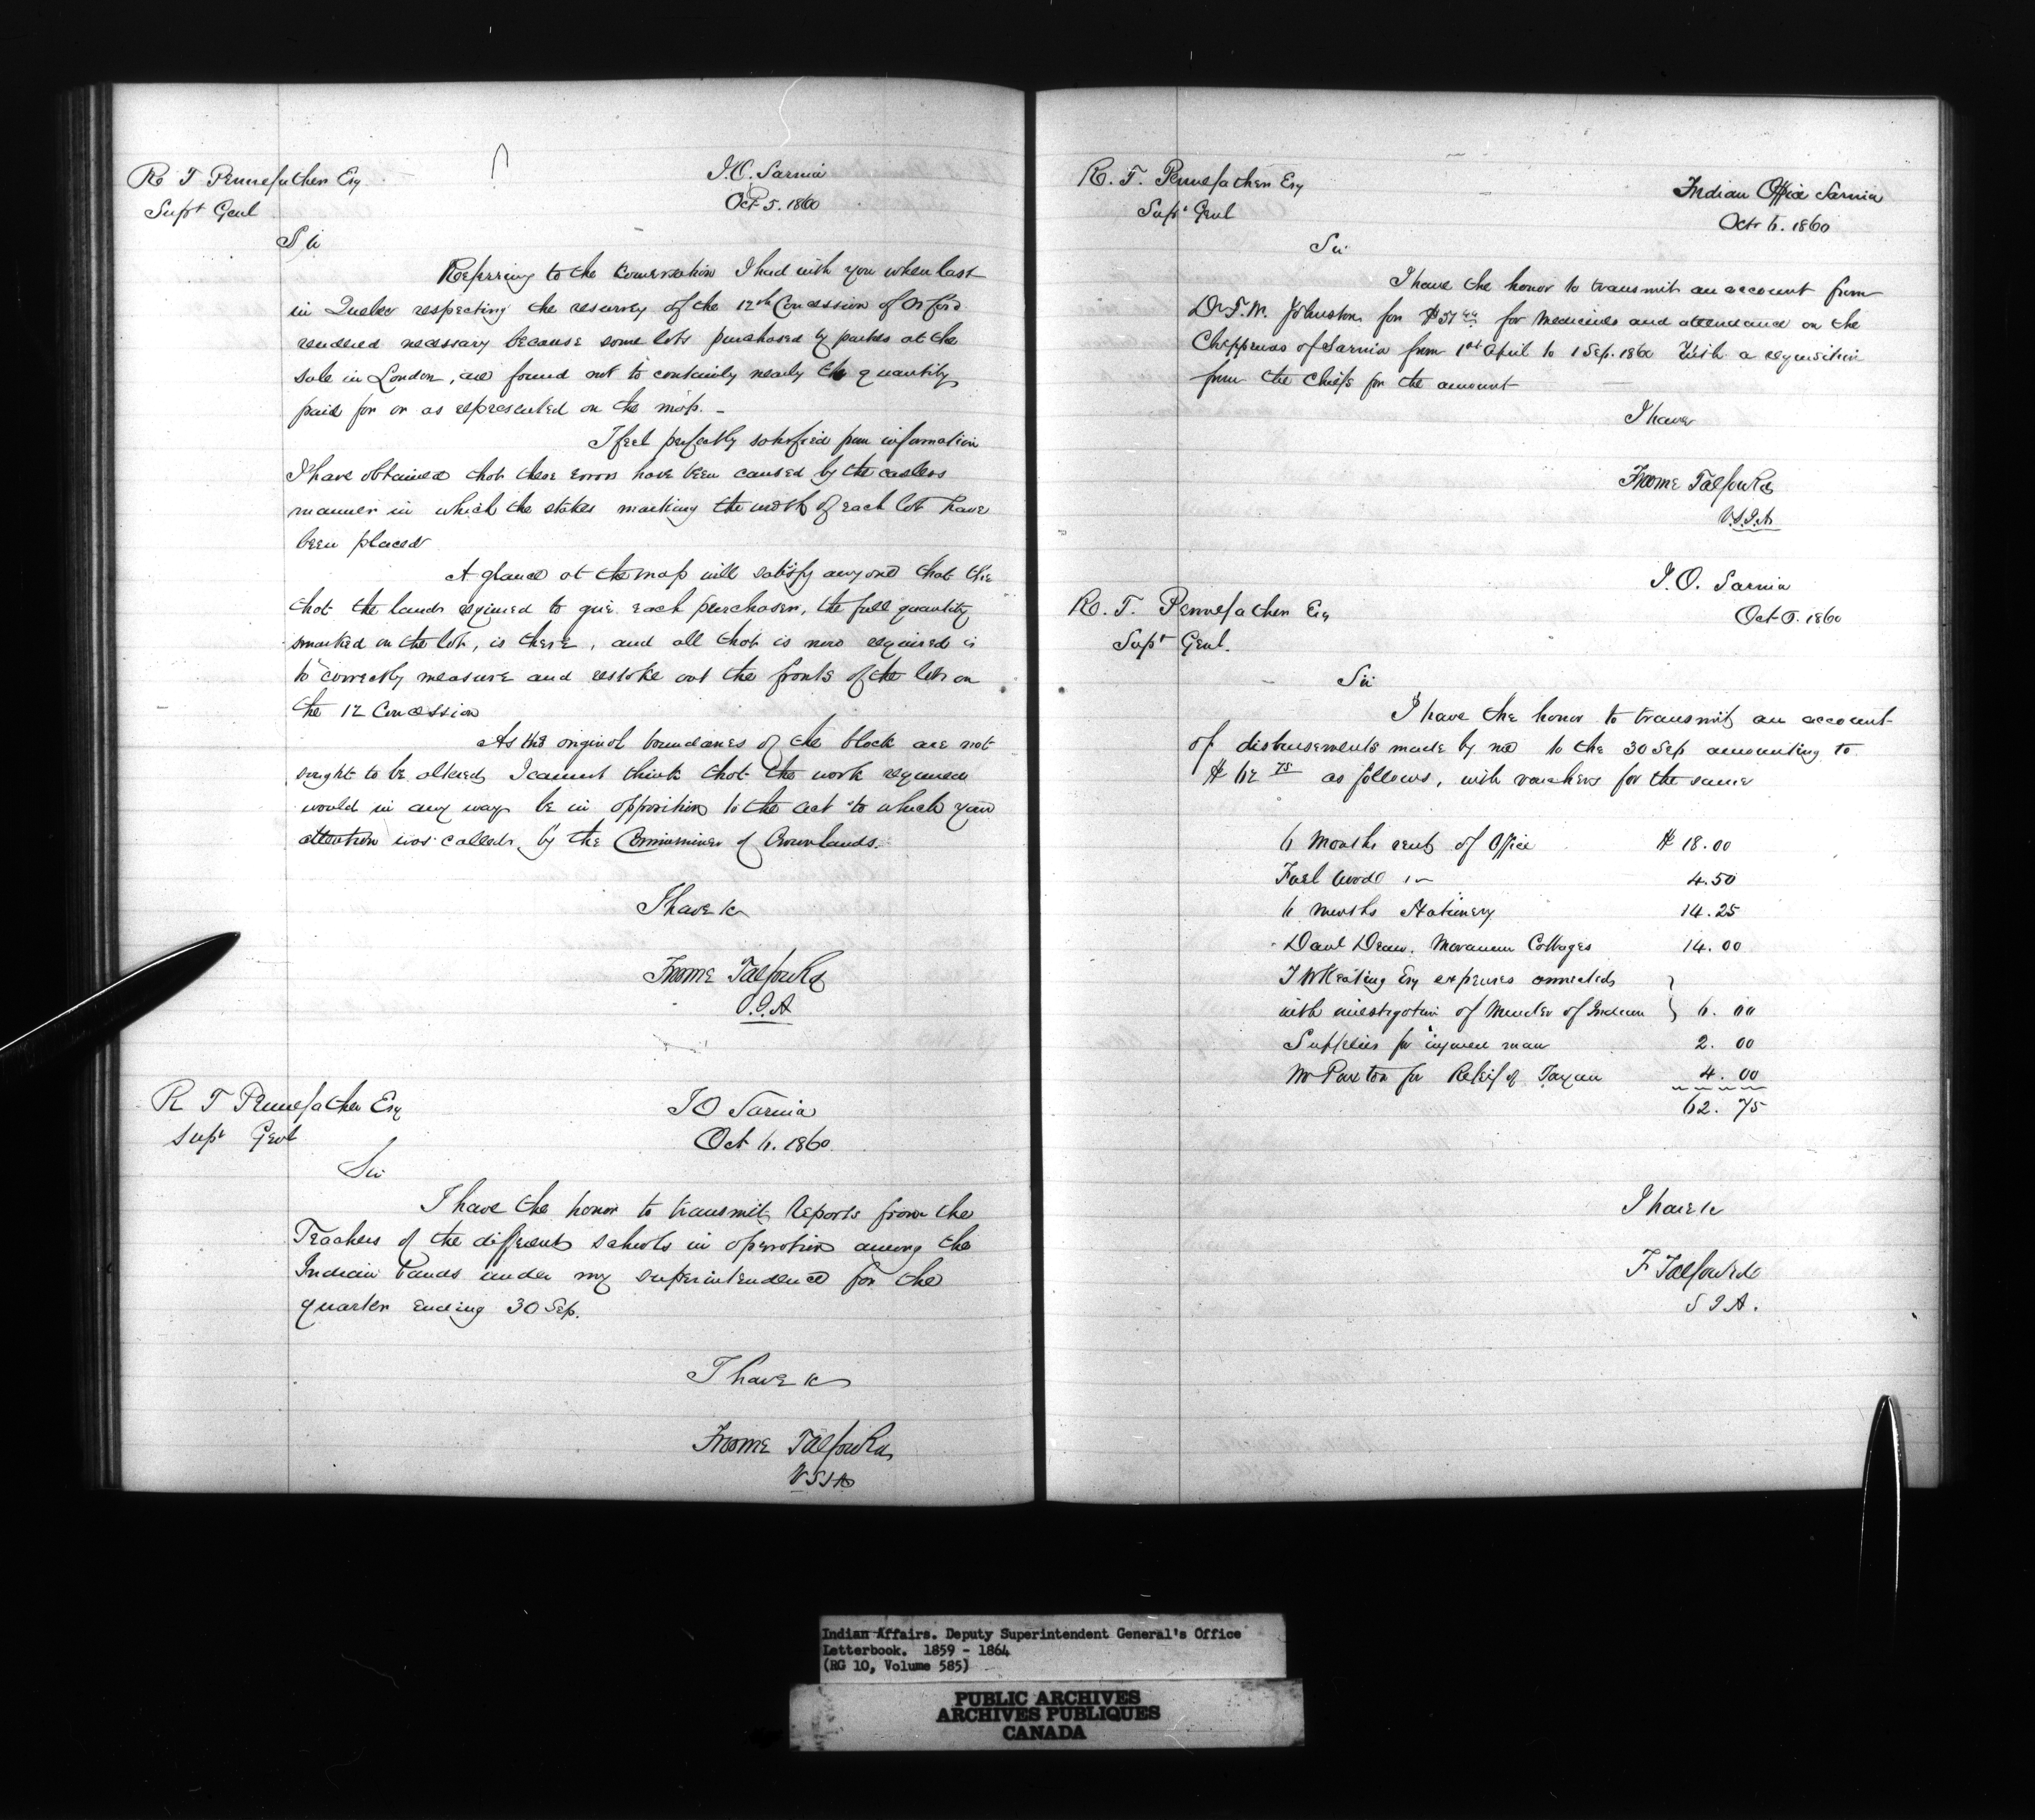 R T Pennefather Esq
Supt Genl
I.O. Sarnia
Oct 5. 1860
Sir
Referring to the Conversation I had with you when last
in Quebec respecting the resurvey of the 12th Concession of Orford
rendered necessary because some lots purchased by parties at the
sale in London, are found not to contain by nearly the quantity
paid for or as represented on the map. -
I feel perfectly satisfied from information
I have obtained that these errors have been caused by the careless
manner in which the stakes marking the width of each lot have
been placed
A glance at the map will satisfy anyone that the
that the lands required to give each purchaser, the full quantity
marked on the lot, is there, and all that is now required is
to correctly measure and restake out the fronts of the lots on
the 12 Concession
As the original boundaries of the block are not
sought to be altered, I cannot think that the work required
would in any way be in opposition to the act to which your
attention was called, by the Commissioner of Crown lands.
I have &c
Froome Talfourd
V.S.I.A
R T Pennefather Esq
Supt Genl
I O Sarnia
Oct 6. 1860
Sir
I have the honor to transmit Reports from the
Teachers of the different schools in operation among the
Indian Bands under my superintendence for the
quarter ending 30 Sep.
I have &c
Froome Talfourd
V S I A
R. T. Pennefather Esq
Supt Genl
Indian Office Sarnia
Oct 6. 1860
Sir
I have the honor to transmit an account from
Dr T. W. Johnston for $51 for Medicines and attendance on the
Chippewas of Sarnia from 1st April to 1 Sep. 1860 With a requisition
from the Chiefs for the amount
I have
Froome Talfourd
V.S.I.A
I.O. Sarnia
Oct 6. 1860
R. T. Pennefather Esq
Supt Genl.
Sir
I have the honor to transmit an account
of disbursements made by me to the 30 Sep amounting to
$ 62 75 as follows, with vouchers for the same
6 Months rent of Office $ 18.00
Fuel Wood 4.50
6 months Stationery 14.25
Danl Dean. Moravian Cottages 14.00
J W Keating Esq expenses connected
with investigation of Murder of Indian 6. 00
Supplies for injured man 2. 00
W Paxton for Releif of 4. 00
62. 75
I have &c
F Talfourd
S I A.
Indian Affairs. Deputy Superintendent General's Office
Letterbook. 1859 - 1864
(RG 10, Volume 585)
PUBLIC ARCHIVES
ARCHIVES PUBLIQUES
CANADA